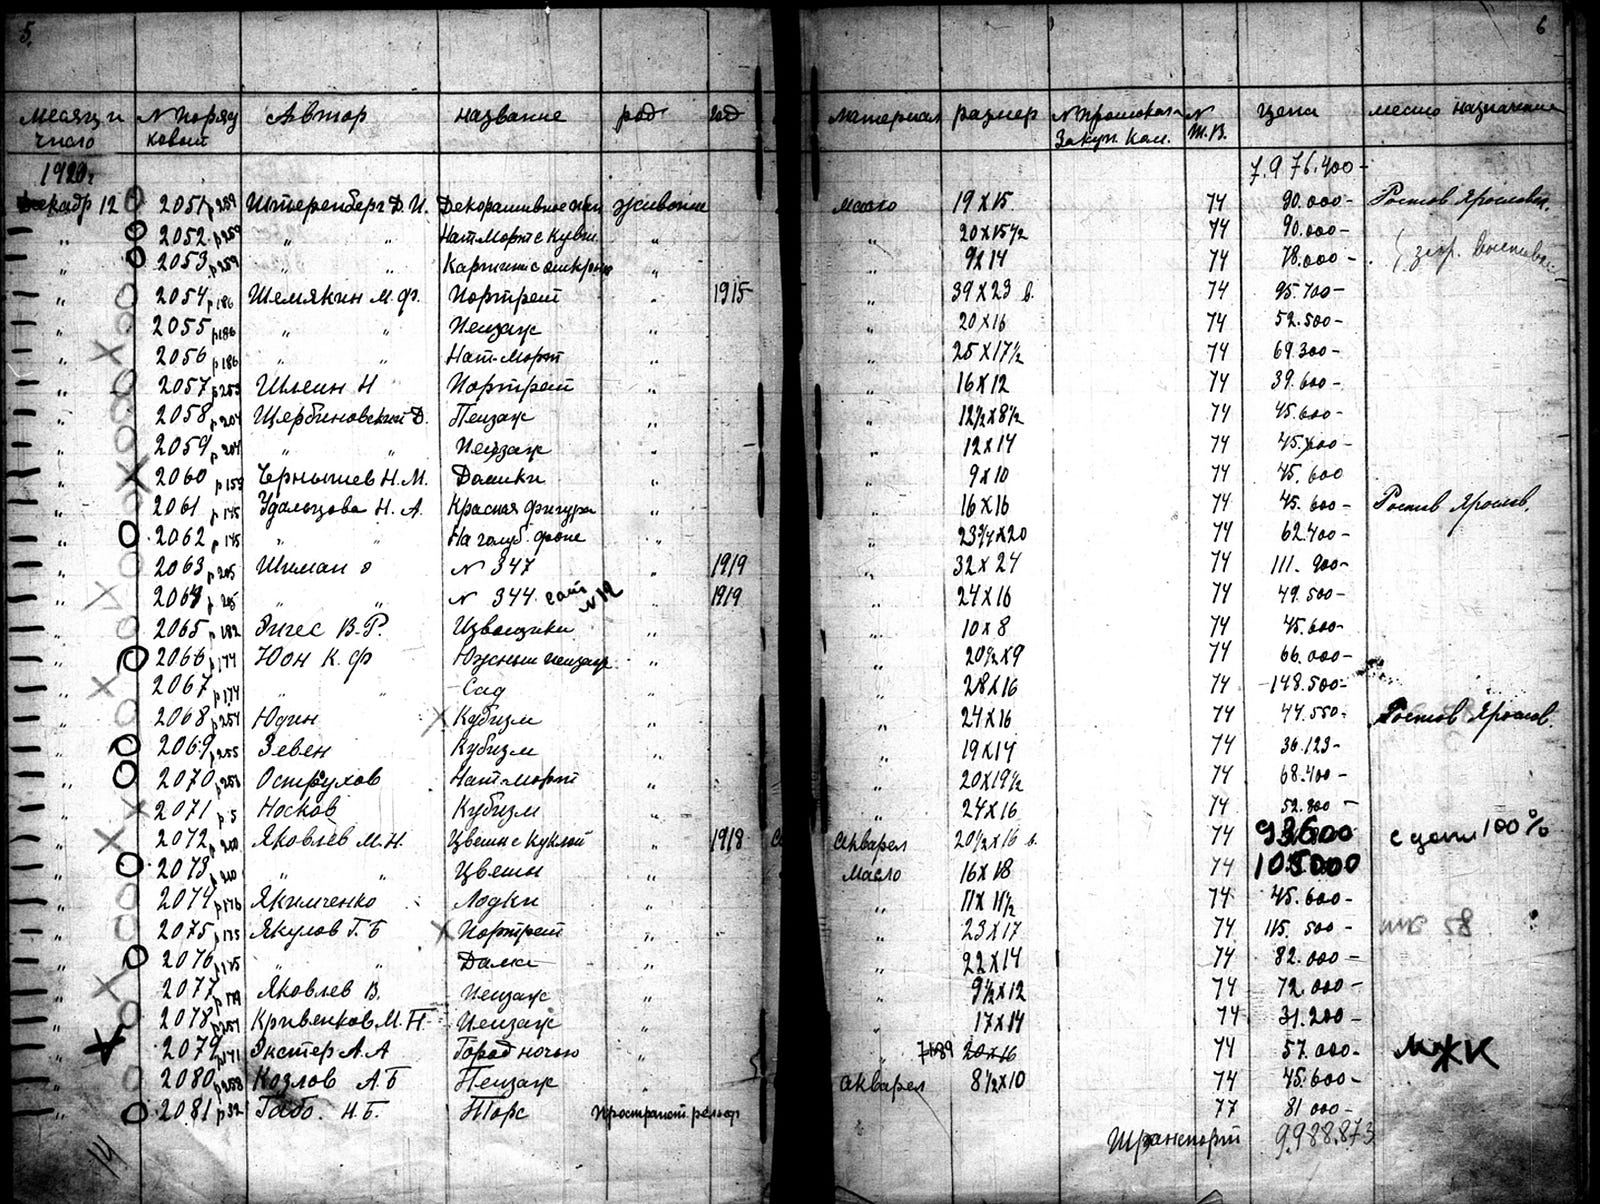 5. 6
Месяц и число № порядковый Автор название род год материал размер № протокола Закуп. Ком. № Ж.В. цена место назначения
1920г 7.976.400-
Декабр 12 2051 р259 Штеренберг Д. И. Декоративное живопись масло 19 х 15 74 90.000- Ростов Ярославск.
" 2052 р259 " Нат. Морт с кувш. " " 20х15½ 74 90.000-
" 2053 р259 " " " 9х14 74 78.000-
" 2054 р186 Шемякин М. Ф. Портрет " 1915 " 39х23 в. 74 95.700-
" 2055 р186 " " Пейзаж " " 20х16 74 52.500-
" 2056 р186 " " Нат-Морт " " 25х17½ 74 69.300-
" 2057 р253 Шлеин Н Портрет " " 16х12 74 39.600-
" 2058 р204 Щербиновский Д. Пейзаж " " 12½х8½ 74 45.600-
" 2059 р204 " " Пейзаж " " 12х14 74 45.600-
" 2060 р153 Чернышев Н. М. Домики " " 9х10 74 45.600
" 2061 р145 Удальцова Н. А. Красная фигура " " 16х16 74 45.600- Ростов Ярослав.
" 2062 р145 " " На голуб. фоне " " 23¾х20 74 62.400-
" 2063 р205 Шиман о № 347 " 1919 " 32х24 74 111.900-
" 2064 р205 " " № 344 № 12 " 1919 " 24х16 74 49.500-
" 2065 р182 Эйгес В.Р. Извощики " " 10х8 74 45.600-
" 2066 р174 Юон К. Ф Южный пейзаж " " 20½х9 74 66.000-
" 2067 р174 " " Сад " " 28х16 74 148.500-
" 2068 р254 Юдин Кубизм " " 24х16 74 44.550- Ростов Ярослав.
" 2069 р255 Зевен Кубизм " " 19х14 74 36.123-
" 2070 Остр​ухов Нат-морт " " 20х19½ 74 68.400-
" 2071 р5 Носков Кубизм " " 24х16 74 52.800-
" 2072 р200 Яковлев М.Н. Цветы с куклой " 1918 Акварел 20½х16 в. 74 93600 с цены 100%
" 2073 р200 " " Цветы " Масло 16х18 74 105000
" 2074 р176 Якимченко Лодки " " 11х11½ 74 45.600-
" 2075 р175 Якулов Г.Б Портрет " " 23х17 74 115.500-
" 2076 р175 " " Дамы " " 22х14 74 82.000-
" 2077 р179 Яковлев В. Пейзаж " " 9½х12 74 72.000-
" 2078 р257 Кривенков М. П. Пейзаж " " 17х14 74 31.200-
" 2079 р141 Экстер А.А Город ночью " " 71х89 20х16 74 57.000- МЖК
" 2080 р258 Козлов А.Б Пейзаж " Акварел 8½х10 74 45.600-
" 2081 р32 Габо. Н.Б. Торс пространст. рельеф 77 81000-
14 Транспорт 9.988.873